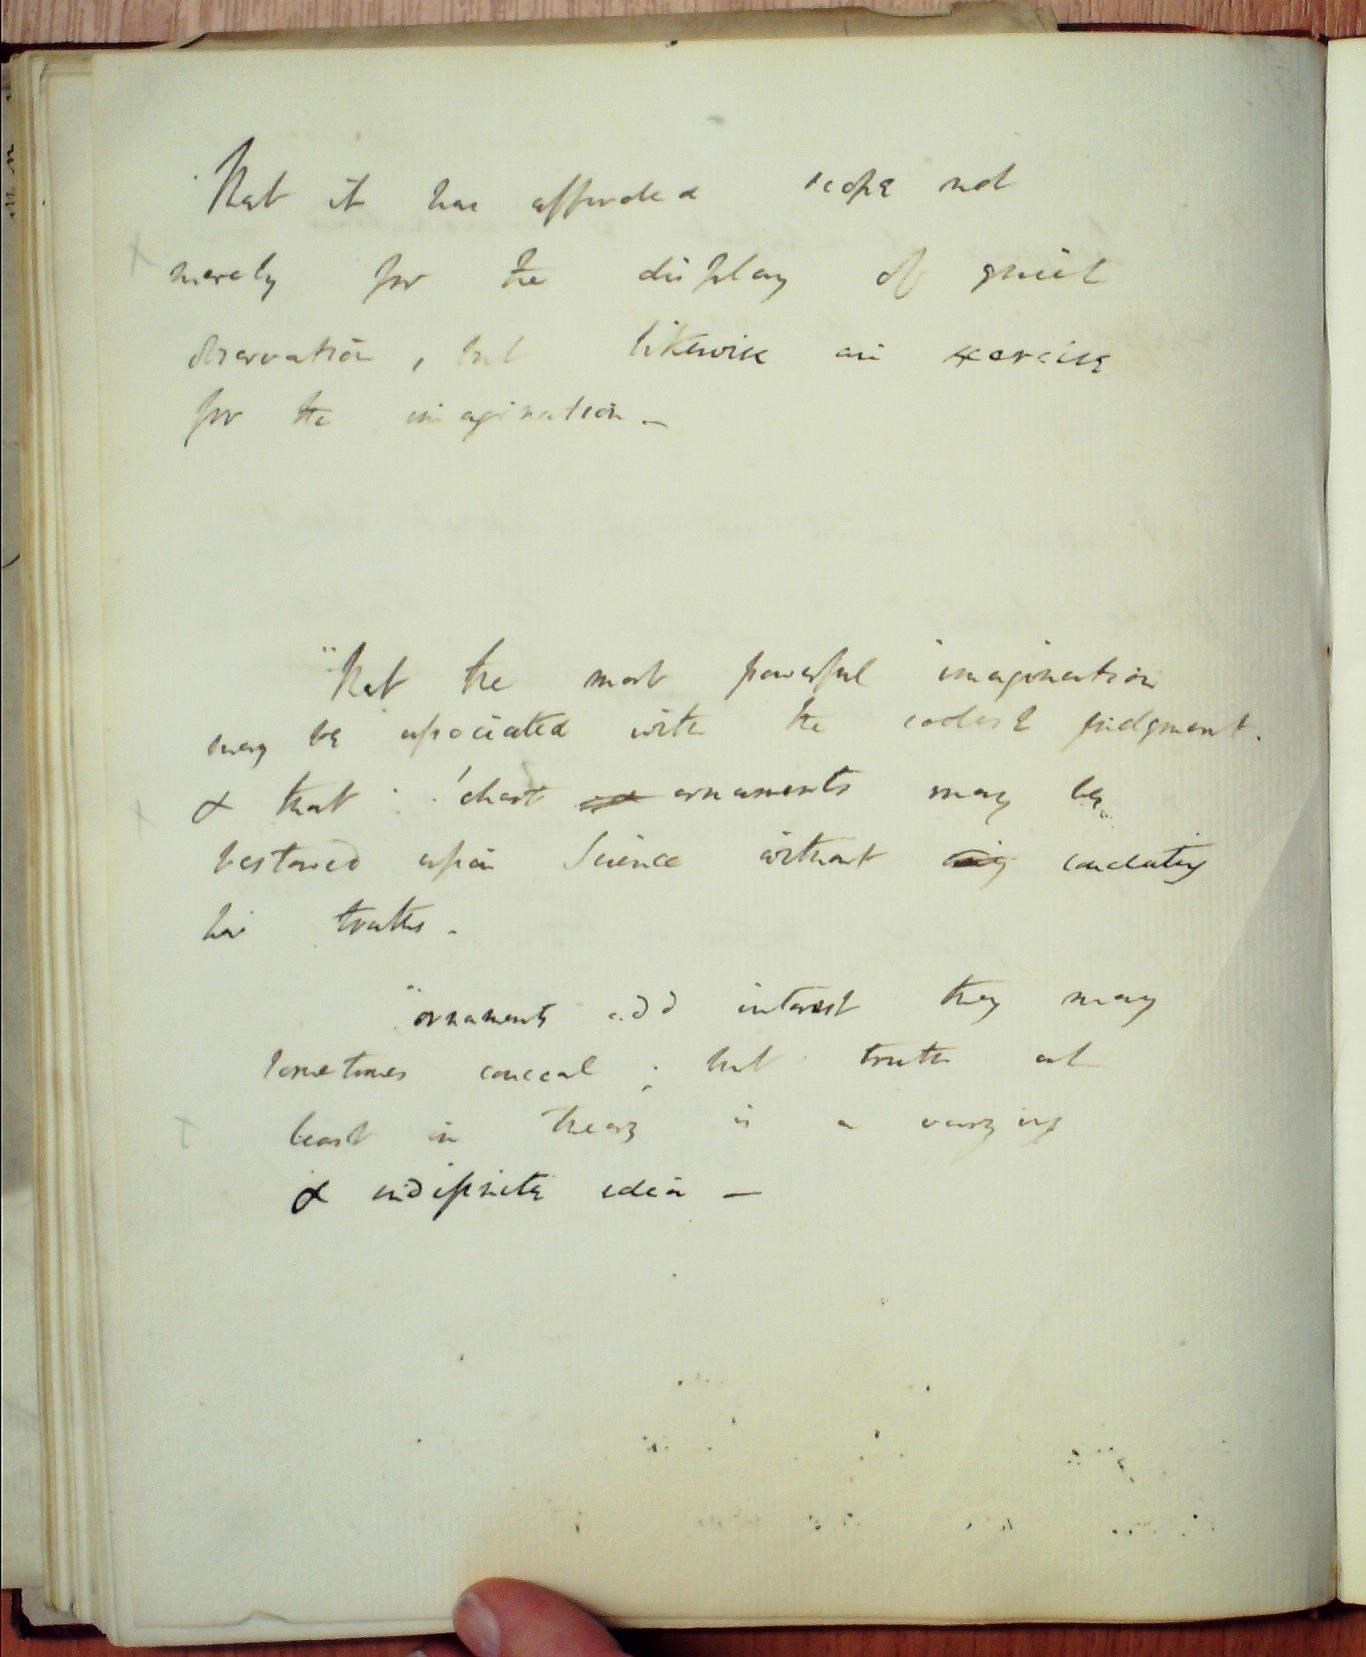 That it has afforded scope not
merely for the display of quick
observation, but likewise an exercise
for the imagination. –
"That the most powerful imagination
may be associated with the coolest judgment.
& that chast ornaments may be
bestowed upon Science without concealing
her truths.
"ornaments add interest they may
sometimes conceal; but truth at
least in theory is a varying
& indefinite idea –